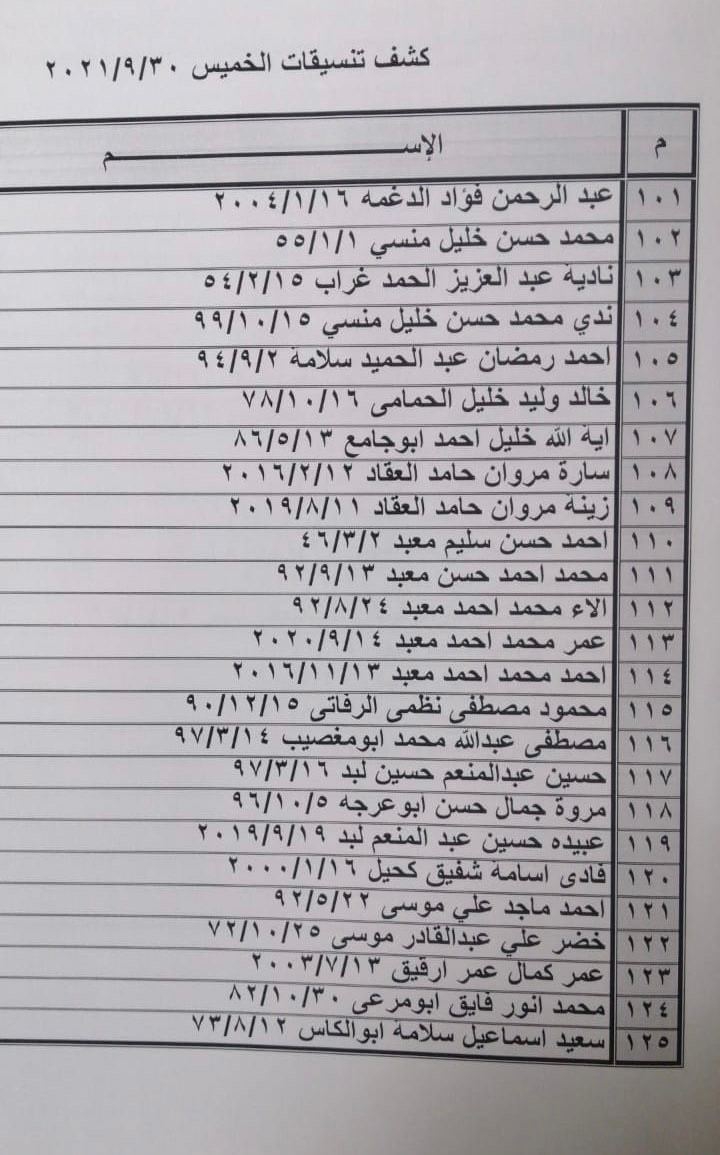 كشف تنسيقات الخميس ٢٠٢١/٩/٣٠
م الإســــــم
١٠١ عبد الرحمن فؤاد الدغمه ٢٠٠٤/١/١٦
١٠٢ محمد حسن خليل منسي ٥٥/١/١
١٠٣ نادية عبد العزيز الحمد غراب ٥٤/٢/١٥
١٠٤ ندي محمد حسن خليل منسي ٩٩/١٠/١٥
١٠٥ احمد رمضان عبد الحميد سلامة ٩٤/٩/٢
١٠٦ خالد وليد خليل الحمامى ٧٨/١٠/١٦
١٠٧ اية الله خليل احمد ابوجامع ٨٦/٥/١٣
١٠٨ سارة مروان حامد العقاد ٢٠١٦/٢/١٢
١٠٩ زينة مروان حامد العقاد ٢٠١٩/٨/١١
١١٠ احمد حسن سليم معبد ٤٦/٣/٢
١١١ محمد احمد حسن معبد ٩٢/٩/١٣
١١٢ الاء محمد احمد معبد ٩٢/٨/٢٤
١١٣ عمر محمد احمد معبد ٢٠٢٠/٩/١٤
١١٤ احمد محمد احمد معبد ٢٠١٦/١١/١٣
١١٥ محمود مصطفى نظمى الرفاتى ٩٠/١٢/١٥
١١٦ مصطفى عبدالله محمد ابومغصيب ٩٧/٣/١٤
١١٧ حسين عبدالمنعم حسين لبد ٩٧/٣/١٦
١١٨ مروة جمال حسن ابوعرجه ٩٦/١٠/٥
١١٩ عبيده حسين عبد المنعم لبد ٢٠١٩/٩/١٩
١٢٠ فادى اسامة شفيق كحيل ٢٠٠٠/١/١٦
١٢١ احمد ماجد علي موسى ٩٢/٥/٢٢
١٢٢ خضر علي عبدالقادر موسي ٧٢/١٠/٢٥
١٢٣ عمر كمال عمر ارقيق ٢٠٠٣/٧/١٣
١٢٤ محمد انور فايق ابومرعى ٨٢/١٠/٣٠
١٢٥ سعيد اسماعيل سلامة ابوالكاس ٧٣/٨/١٢